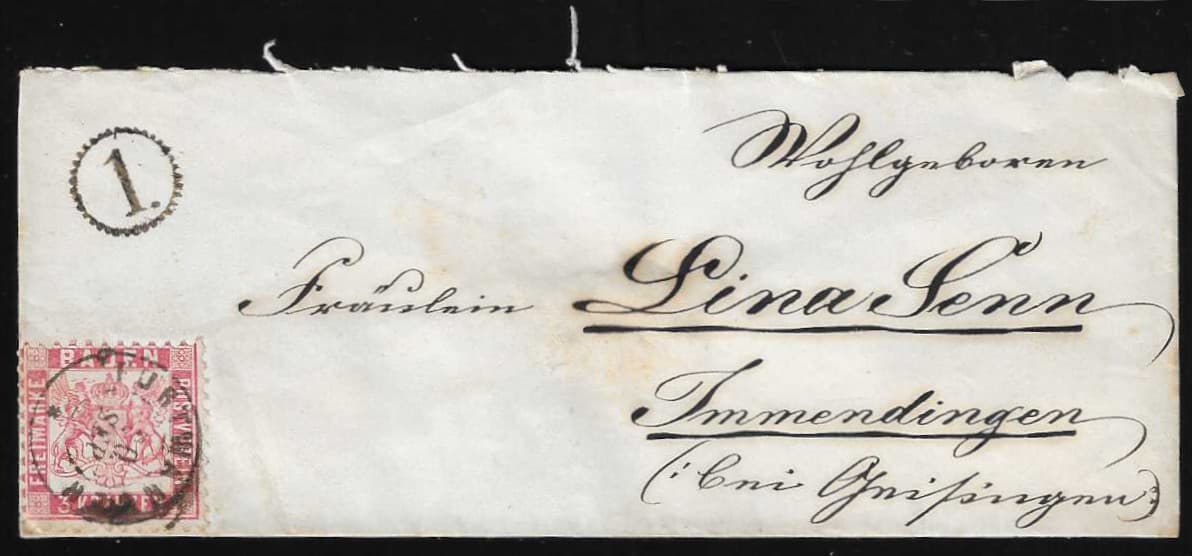 1.
Wohlgeboren
Fräulein Lina Senn
Immendingen
(: bei Geisingen :)
BADEN
FREIMARKE
POSTVEREIN
3 KREUZER